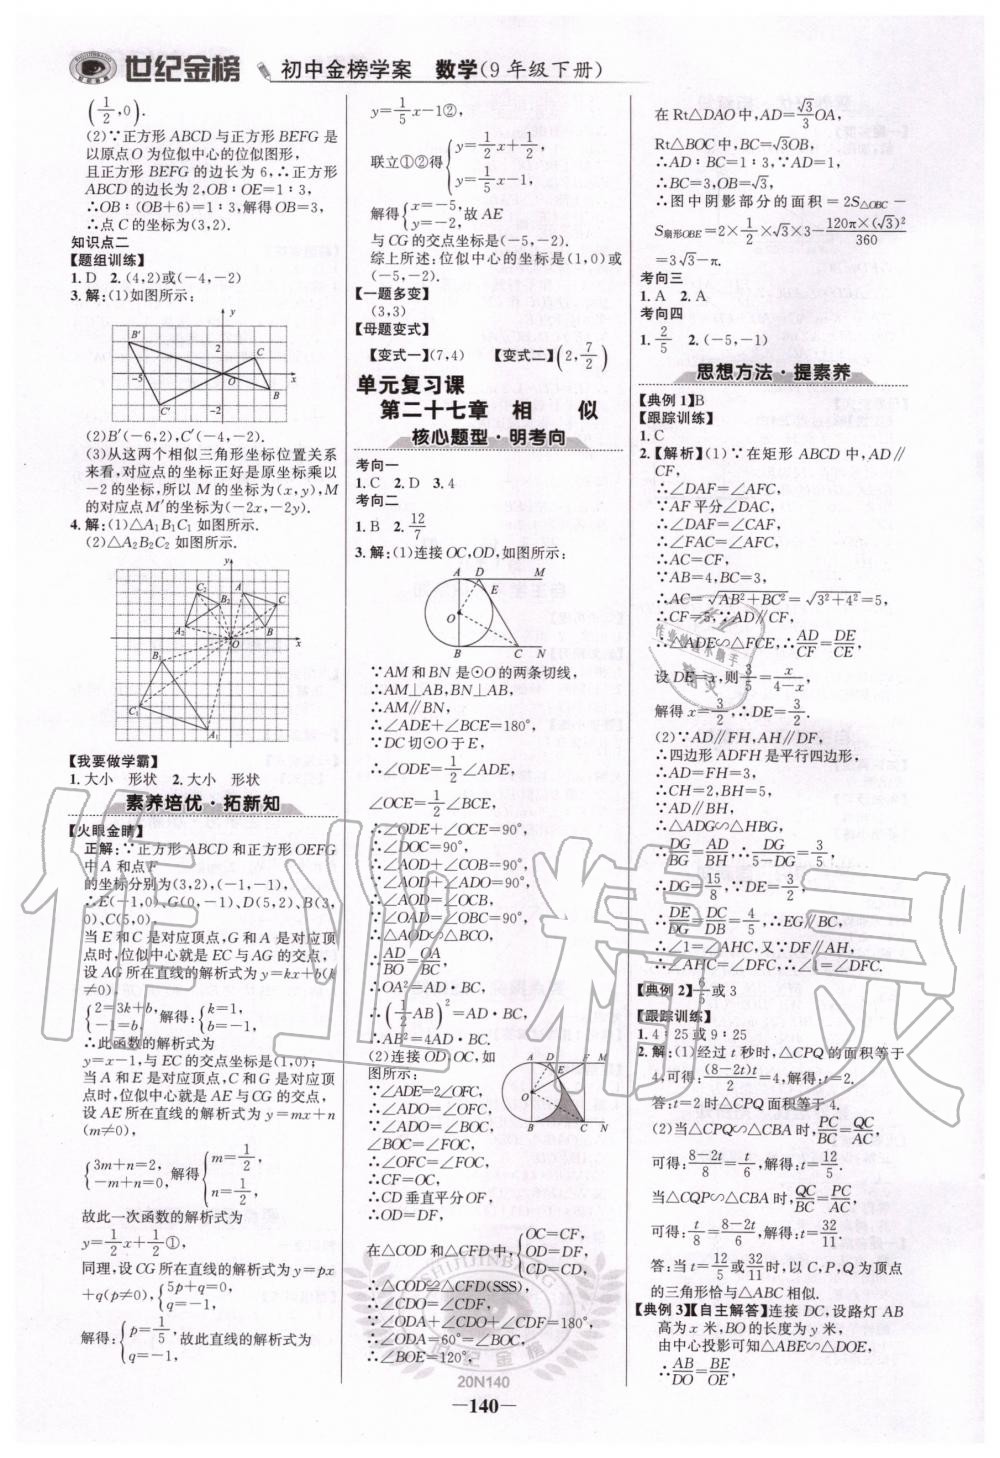 世纪金榜 初中金榜学案 数学(9年级下册)
(1/2,0).
(2)∵正方形ABCD与正方形BEFG是
以原点O为位似中心的位似图形,
且正方形BEFG的边长为6,∴正方形
ABCD的边长为2,OB∶OE=1∶3,
∴OB∶(OB+6)=1∶3,解得OB=3,
∴点C的坐标为(3,2).
知识点二
【题组训练】
1.D 2.(4,2)或(-4,-2)
3.解:(1)如图所示:
B′ y 2 C -5 O x B C′ -2
(2)B′(-6,2),C′(-4,-2).
(3)从这两个相似三角形坐标位置关系
来看,对应点的坐标正好是原坐标乘以
-2的坐标,所以M的坐标为(x,y),M
的对应点M′的坐标为(-2x,-2y).
4.解:(1)△A₁B₁C₁如图所示.
(2)△A₂B₂C₂如图所示.
y C₂ A B₂ C A₂ B O x B₁ C₁ A₁
【我要做学霸】
1.大小 形状 2.大小 形状
素养培优·拓新知
【火眼金睛】
正解:∵正方形ABCD和正方形OEFG
中A和点F
的坐标分别为(3,2),(-1,-1),
∴E(-1,0),G(0,-1),D(5,2),B(3,
0),C(5,0).
当E和C是对应顶点,G和A是对应顶
点时,位似中心就是EC与AG的交点,
设AG所在直线的解析式为y=kx+b(k
≠0),
{2=3k+b, -1=b, 解得:{k=1, b=-1.
∴此函数的解析式为
y=x-1,与EC的交点坐标是(1,0);
当A和E是对应顶点,C和G是对应顶
点时,位似中心就是AE与CG的交点,
设AE所在直线的解析式为y=mx+n
(m≠0),
{3m+n=2, -m+n=0, 解得{m=1/2, n=1/2,
故此一次函数的解析式为
y=1/2x+1/2①,
同理,设CG所在直线的解析式为y=px
+q(p≠0),{5p+q=0, q=-1,
解得:{p=1/5, q=-1, 故此直线的解析式为
y=1/5x-1②,
联立①②得{y=1/2x+1/2, y=1/5x-1,
解得{x=-5, y=-2, 故AE
与CG的交点坐标是(-5,-2).
综上所述:位似中心的坐标是(1,0)或
(-5,-2).
【一题多变】
(3,3)
【母题变式】
【变式一】(7,4) 【变式二】(2,7/2)
单元复习课
第二十七章 相 似
核心题型·明考向
考向一
1.C 2.D 3.4
考向二
1.B 2.12/7
3.解:(1)连接OC,OD,如图所示:
A D M E O B C N
∵AM和BN是⊙O的两条切线,
∴AM⊥AB,BN⊥AB,
∴AM∥BN,
∴∠ADE+∠BCE=180°,
∵DC切⊙O于E,
∴∠ODE=1/2∠ADE,
∠OCE=1/2∠BCE,
∴∠ODE+∠OCE=90°,
∴∠DOC=90°,
∴∠AOD+∠COB=90°,
∵∠AOD+∠ADO=90°,
∴∠AOD=∠OCB,
∵∠OAD=∠OBC=90°,
∴△AOD∽△BCO,
∴AD/BO=OA/BC,
∴OA²=AD·BC,
∴(1/2AB)²=AD·BC,
∴AB²=4AD·BC.
(2)连接OD,OC,如
图所示:
A D F M E O B C N
∵∠ADE=2∠OFC,
∴∠ADO=∠OFC,
∵∠ADO=∠BOC,
∠BOC=∠FOC,
∴∠OFC=∠FOC,
∴CF=OC,
∴CD垂直平分OF,
∴OD=DF,
在△COD和△CFD中,{OC=CF, OD=DF, CD=CD,
∴△COD≌△CFD(SSS),
∴∠CDO=∠CDF,
∵∠ODA+∠CDO+∠CDF=180°,
∴∠ODA=60°=∠BOC,
∴∠BOE=120°,
在Rt△DAO中,AD=√3/3OA,
Rt△BOC中,BC=√3OB,
∴AD∶BC=1∶3,∵AD=1,
∴BC=3,OB=√3,
∴图中阴影部分的面积=2S△OBC-
S扇形OBE=2×1/2×√3×3-120π×(√3)²/360
=3√3-π.
考向三
1.A 2.A
考向四
1.2/5 2.(-5,-1)
思想方法·提素养
【典例1】B
【跟踪训练】
1.C
2.【解析】(1)∵在矩形ABCD中,AD∥
CF,
∴∠DAF=∠AFC,
∵AF平分∠DAC,
∴∠DAF=∠CAF,
∴∠FAC=∠AFC,
∴AC=CF,
∵AB=4,BC=3,
∴AC=√AB²+BC²=√3²+4²=5,
∴CF=5,∵AD∥CF,
∴△ADE∽△FCE,∴AD/CF=DE/CE,
设DE=x,则3/5=x/4-x,
解得x=3/2,∴DE=3/2.
(2)∵AD∥FH,AH∥DF,
∴四边形ADFH是平行四边形,
∴AD=FH=3,
∴CH=2,BH=5,
∵AD∥BH,
∴△ADG∽△HBG,
∴DG/BG=AD/BH,∴DG/5-DG=3/5,
∴DG=15/8,∵DE=3/2,
∴DE/DG=DC/DB=4/5,∴EG∥BC,
∴∠1=∠AHC,又∵DF∥AH,
∴∠AHC=∠DFC,∴∠1=∠DFC.
【典例2】6/5或3
【跟踪训练】
1.4∶25或9∶25
2.解:(1)经过t秒时,△CPQ的面积等于
4,可得:(8-2t)t/2=4,解得:t=2.
答:t=2时△CPQ面积等于4.
(2)当△CPQ∽△CBA时,PC/BC=QC/AC,
可得:8-2t/8=t/6,解得:t=12/5.
当△CQP∽△CBA时,QC/BC=PC/AC,
可得:t/8=8-2t/6,解得:t=32/11.
答:当t=12/5或32/11时,以C,P,Q为顶点
的三角形恰与△ABC相似.
【典例3】【自主解答】连接DC,设路灯AB
高为x米,BO的长度为y米,
由中心投影可知△ABE∽△DOE,
∴AB/DO=BE/OE,
20N140
—140—
作业精灵